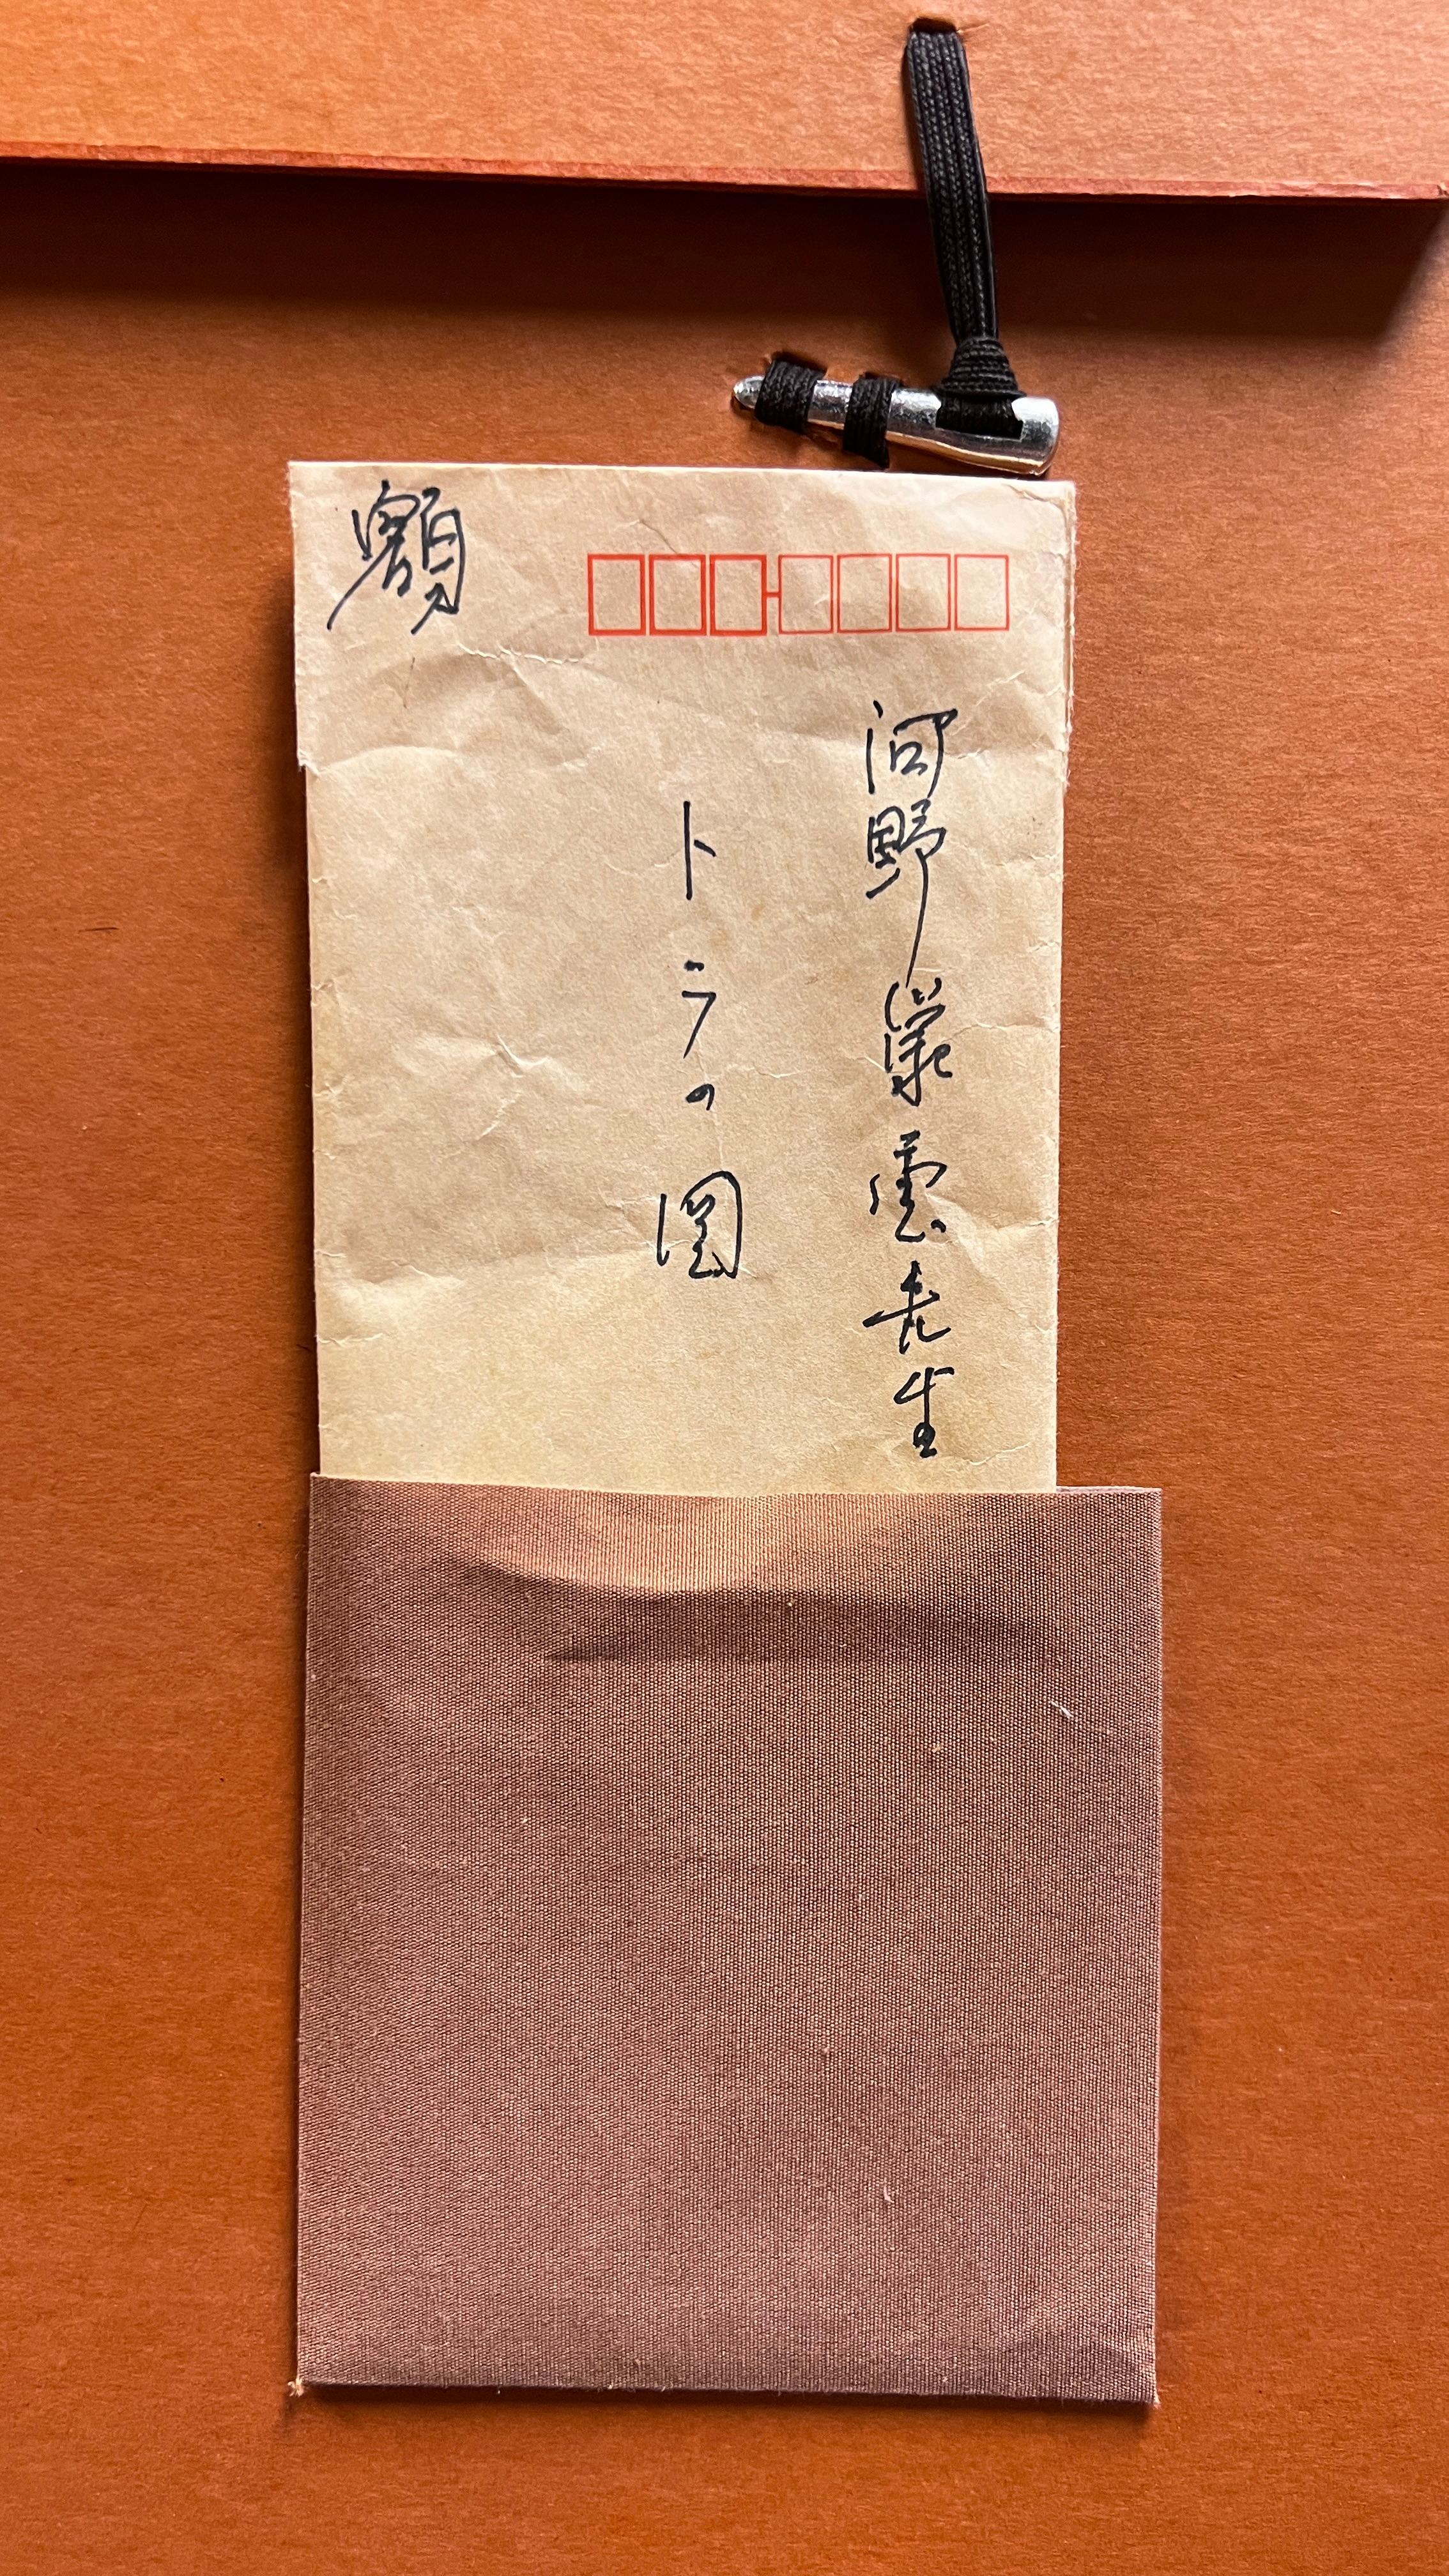 河野雲先生
トラの図
額